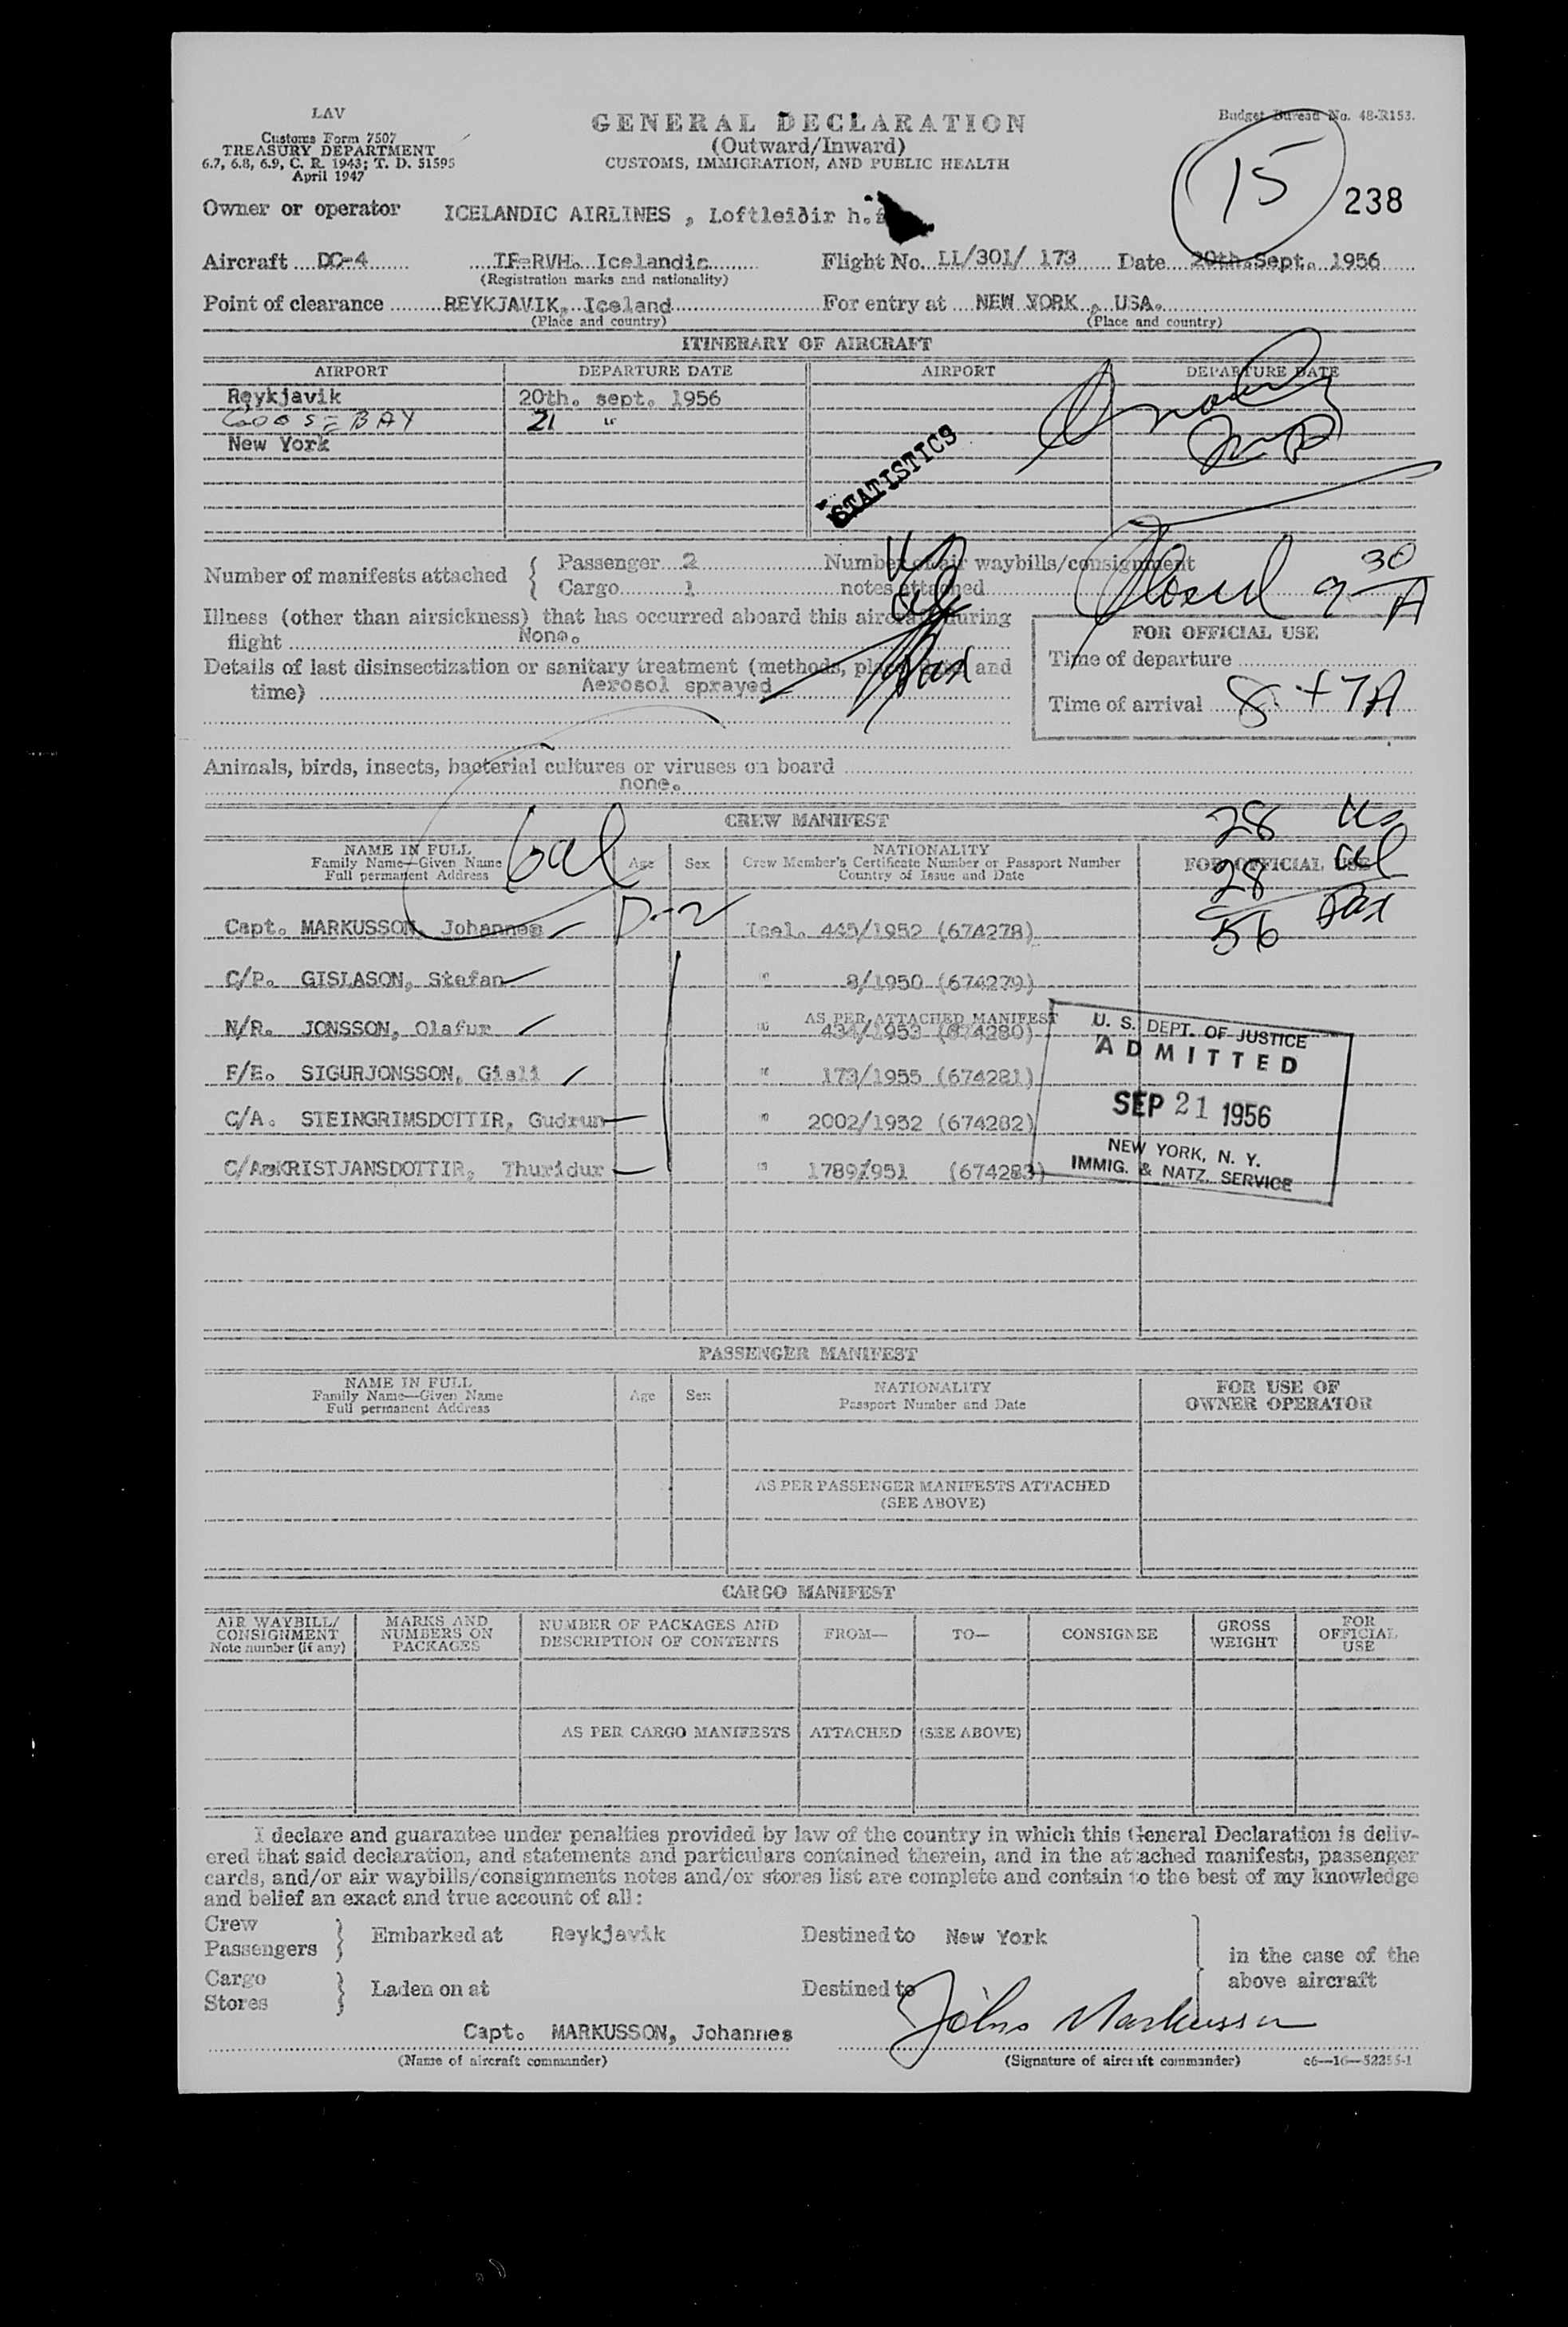 LAV
Customs Form 7507
TREASURY DEPARTMENT
6.7, 6.8, 6.9, C. R. 1943; T. D. 51595
April 1947
GENERAL DECLARATION
(Outward/Inward)
CUSTOMS, IMMIGRATION, AND PUBLIC HEALTH
Budget Bureau No. 48-R153.
15
238
Owner or operator ICELANDIC AIRLINES , Loftleiðir h.f
Aircraft DC-4 TF-RVH. Icelandic Flight No. LL/301/ 173 Date 20th.Sept. 1956
(Registration marks and nationality)
Point of clearance REYKJAVIK, Iceland For entry at NEW YORK , USA.
(Place and country) (Place and country)
ITINERARY OF AIRCRAFT
AIRPORT DEPARTURE DATE AIRPORT DEPARTURE DATE
Reykjavik 20th. sept. 1956
GOOSE BAY 21 "
New York
STATISTICS
Number of manifests attached { Passenger 2 Number of air waybills/consignment
Cargo 1 notes attached
Closed 9 30 A
Illness (other than airsickness) that has occurred aboard this aircraft during
flight None.
Details of last disinsectization or sanitary treatment (methods, place, date, and
time) Aerosol sprayed
FOR OFFICIAL USE
Time of departure
Time of arrival 8 47A
Animals, birds, insects, bacterial cultures or viruses on board
none.
CREW MANIFEST
28 us
28 al
56 Pax
NAME IN FULL
Family Name—Given Name
Full permanent Address
Age Sex
NATIONALITY
Crew Member's Certificate Number or Passport Number
Country of Issue and Date
FOR OFFICIAL USE
6 al
D-2
Capt. MARKUSSON, Johannes Icel. 445/1952 (674278)
C/P. GISLASON, Stefan " 8/1950 (674279)
AS PER ATTACHED MANIFEST
N/R. JONSSON, Olafur " 434/1953 (674280)
F/E. SIGURJONSSON, Gisli " 173/1955 (674281)
C/A. STEINGRIMSDOTTIR, Gudrun " 2002/1952 (674282)
C/A.KRISTJANSDOTTIR, Thuridur " 1789/951 (674283)
U. S. DEPT. OF JUSTICE
ADMITTED
SEP 21 1956
NEW YORK, N. Y.
IMMIG. & NATZ. SERVICE
PASSENGER MANIFEST
NAME IN FULL
Family Name—Given Name
Full permanent Address
Age Sex
NATIONALITY
Passport Number and Date
FOR USE OF
OWNER OPERATOR
AS PER PASSENGER MANIFESTS ATTACHED
(SEE ABOVE)
CARGO MANIFEST
AIR WAYBILL/
CONSIGNMENT
Note number (if any)
MARKS AND
NUMBERS ON
PACKAGES
NUMBER OF PACKAGES AND
DESCRIPTION OF CONTENTS
FROM— TO— CONSIGNEE
GROSS
WEIGHT
FOR
OFFICIAL
USE
AS PER CARGO MANIFESTS ATTACHED (SEE ABOVE)
I declare and guarantee under penalties provided by law of the country in which this General Declaration is deliv-
ered that said declaration, and statements and particulars contained therein, and in the attached manifests, passenger
cards, and/or air waybills/consignments notes and/or stores list are complete and contain to the best of my knowledge
and belief an exact and true account of all:
Crew
Passengers } Embarked at Reykjavik Destined to New York
in the case of the
above aircraft
Cargo
Stores } Laden on at Destined to
Capt. MARKUSSON, Johannes Johs Markusson
(Name of aircraft commander) (Signature of aircraft commander) c6—16—52255-1